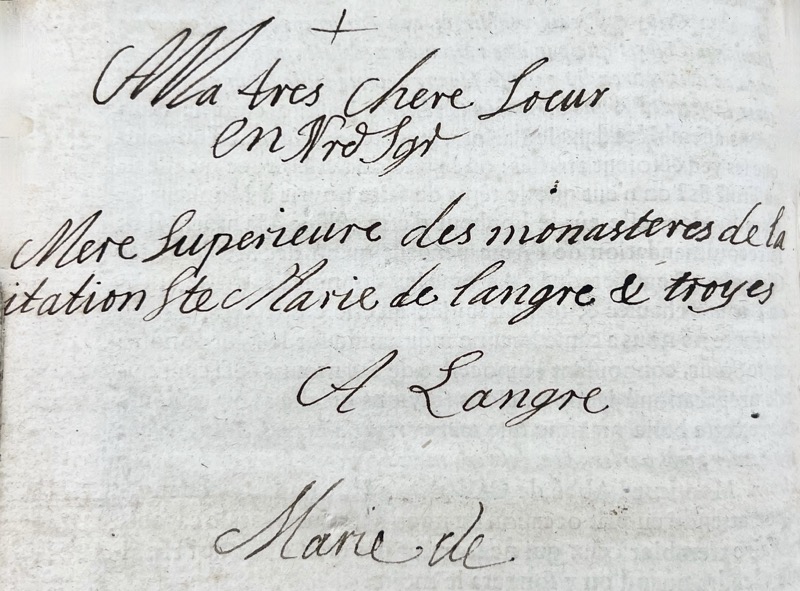 +
A Ma tres Chere Soeur
en Nred Sgr
Mere Superieure des monasteres de la
itation Ste Marie de langre & troyes
A Langre
Marie de